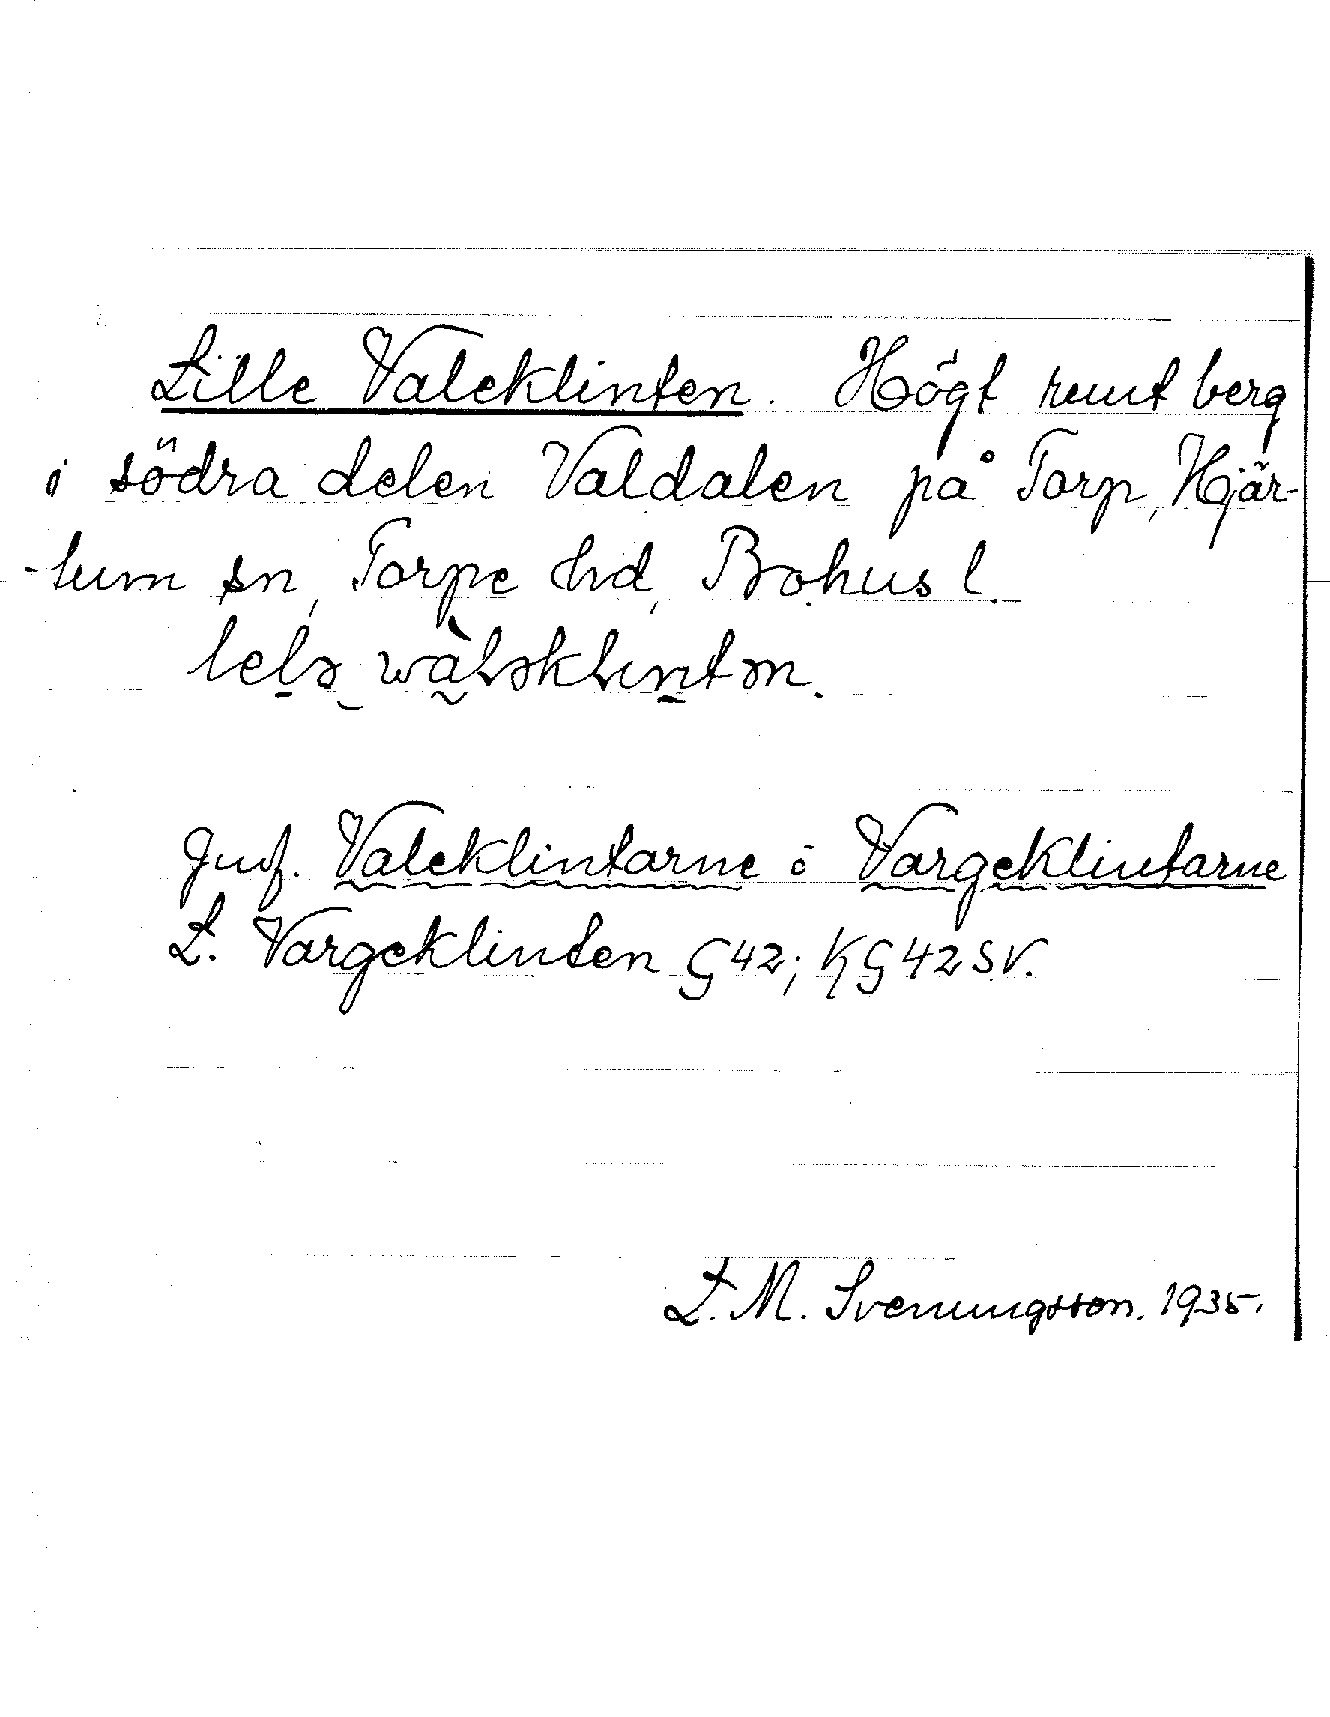 Lille Valeklinten. Högt runt berg
i södra delen Valdalen på Torp, Hjär-
-tum sn, Torpe hd, Bohus l.
Jmf. Valeklintarne o Vargeklintarne
L. Vargeklinten G42; KG42SV.
L. M. Svenungsson. 1935.